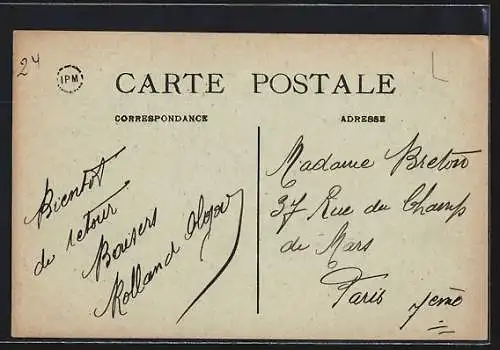 24
IPM
CARTE POSTALE
CORRESPONDANCE
ADRESSE
Bientot
de retour
Baisers
Rolland
Madame Breton
37 Rue du Champ
de Mars
Paris 7eme